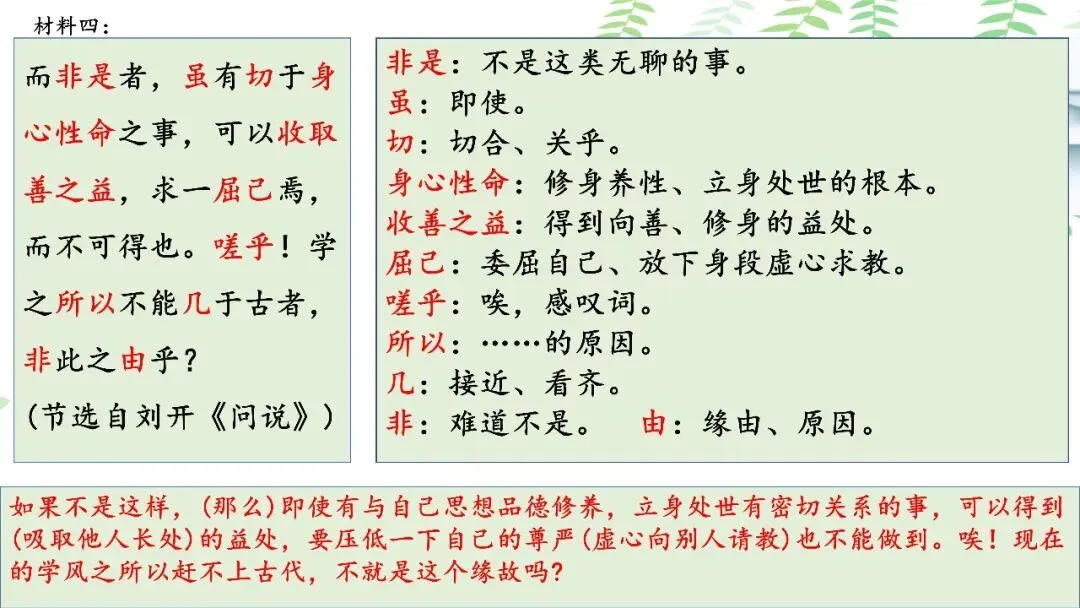 材料四：
而非是者，虽有切于身
心性命之事，可以收取
善之益，求一屈己焉，
而不可得也。嗟乎！学
之所以不能几于古者，
非此之由乎？
(节选自刘开《问说》)
非是：不是这类无聊的事。
虽：即使。
切：切合、关乎。
身心性命：修身养性、立身处世的根本。
收善之益：得到向善、修身的益处。
屈己：委屈自己、放下身段虚心求教。
嗟乎：唉，感叹词。
所以：……的原因。
几：接近、看齐。
非：难道不是。 由：缘由、原因。
如果不是这样，(那么)即使有与自己思想品德修养，立身处世有密切关系的事，可以得到
(吸取他人长处)的益处，要压低一下自己的尊严(虚心向别人请教)也不能做到。唉！现在
的学风之所以赶不上古代，不就是这个缘故吗?